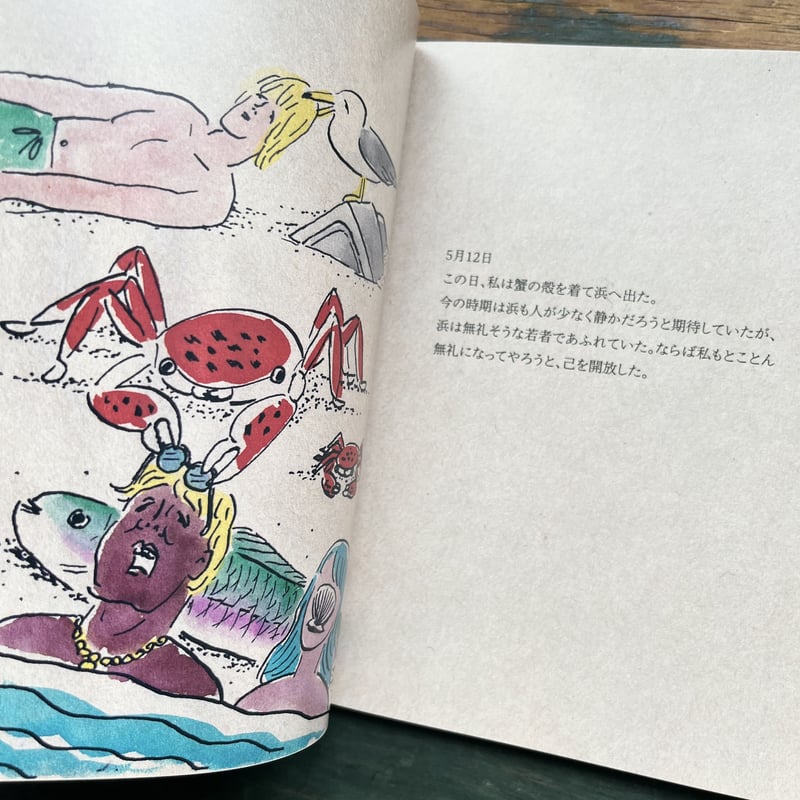 5月12日
この日、私は蟹の殻を着て浜へ出た。
今の時期は浜も人が少なく静かだろうと期待していたが、
浜は無礼そうな若者であふれていた。ならば私もとことん
無礼になってやろうと、己を開放した。